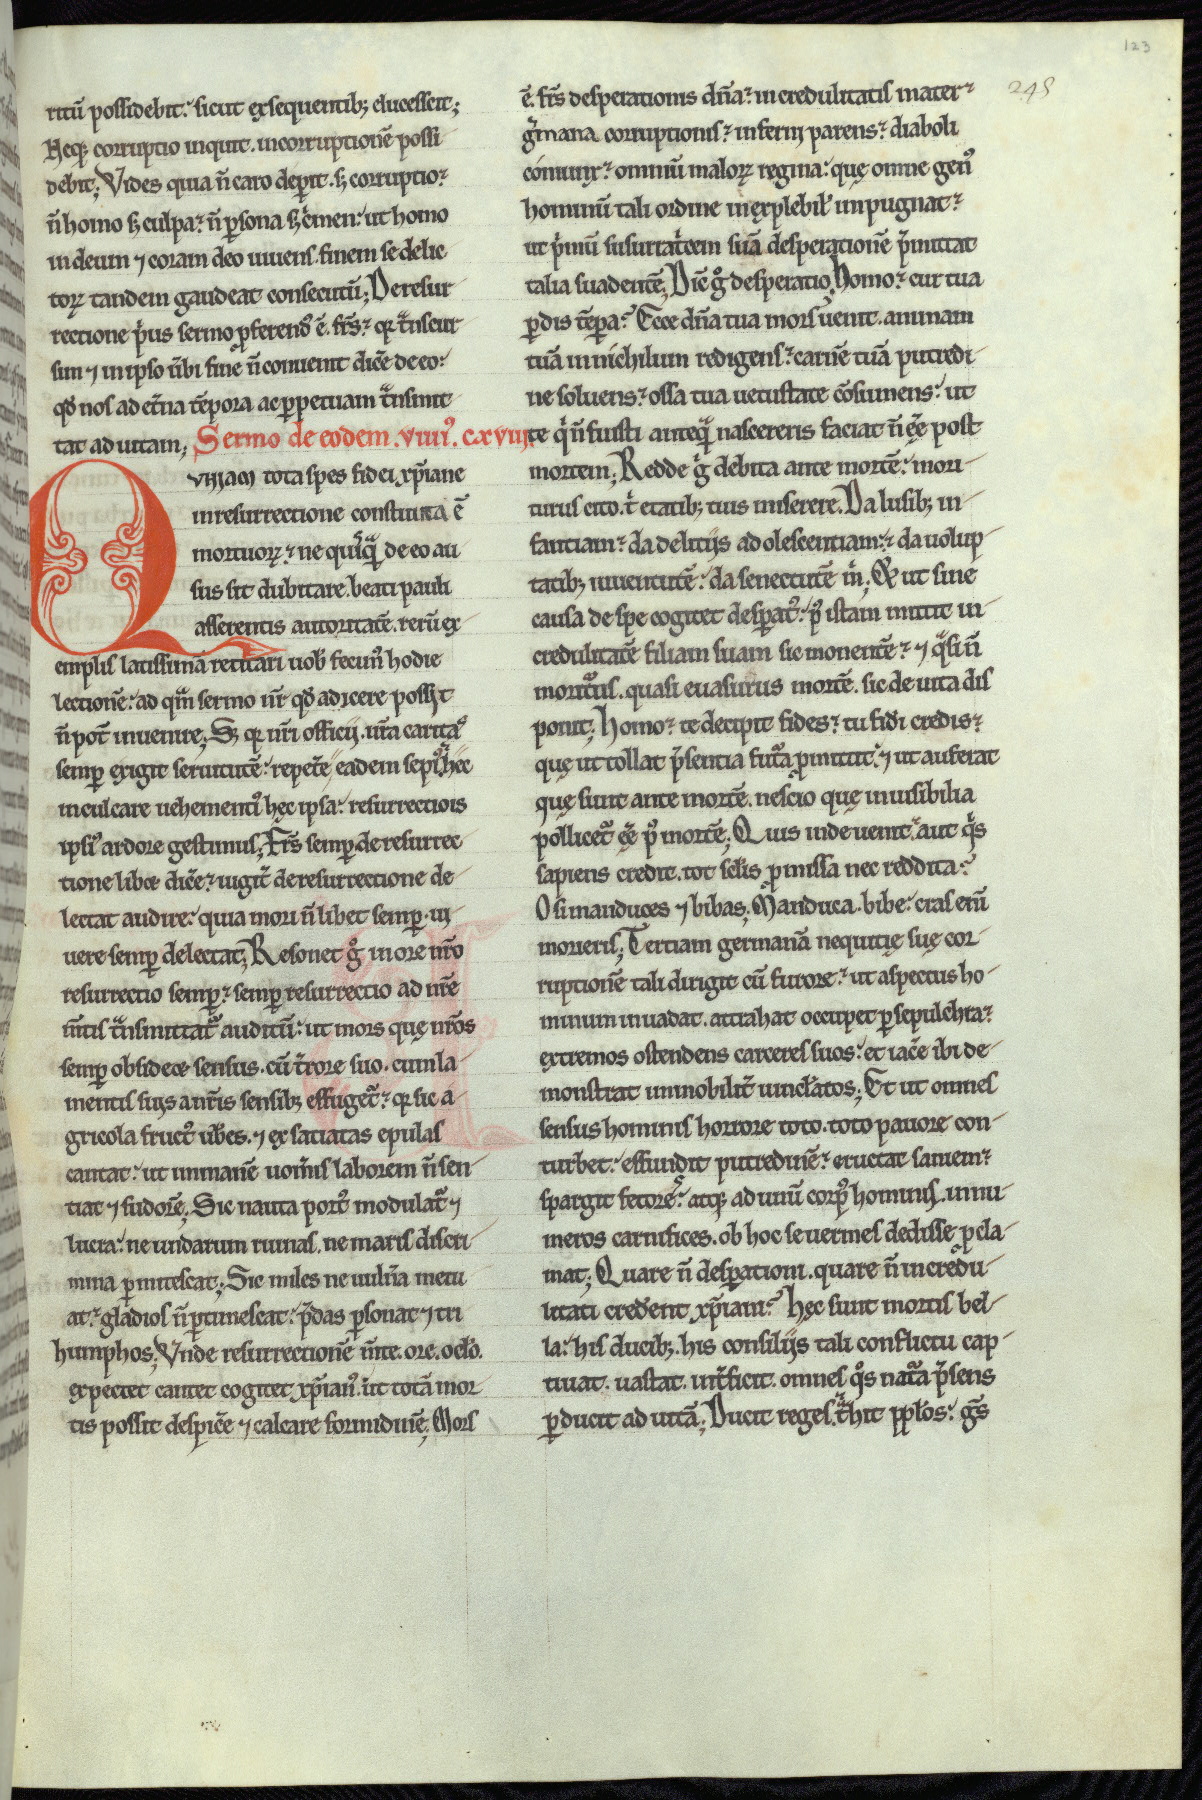 123
248
ritū possidebit: sicut exsequentib; elucesscit;
Neq; corruptio inquit. incorruptionē possi
debit; Vides quia n̄ caro deperit. s; corruptio.
n̄ homo s; culpa. n̄ p̱sona s; c̓men: ut homo
in deum ⁊ coram deo uiuens. finem se delic
toꝝ tandem gaudeat consecutū; De resur
rectione p̓us sermo pferend᷒ ē. fr̄s. qꝛ t̓nscur
sim ⁊ in ipso u̓bi fine n̄ conuenit dic̄e de eo:
qd̄ nos ad et̓na tēpora ac p̱petuam t̓nsmit
tat ad uitam; Sermo de eodem .viiii᷒. cxviii
QVNIAM tota spes fidei xp̄iane
in resurrectione constituta ē
mortuoꝝ. ne quisq̄ de eo au
sus sit dubitare. beati pauli
asserentis autoritatē. rerū ex
emplis latissimā recitari uob̓ fecim᷒ hodie
lectionē: ad qm̄ sermo nr̄ qd̄ adicere possit
n̄ pot̄ inuenire; S; qꝛ nr̄i officii. ur̄a caritas
semp̱ exigit seruitutē: repet̓e eadem sepi᷒. hęc
inculcare uehementi᷒ hęc ipsa: resurrectiois
ipsi᷒ ardore gestimus; Fr̄s semp̱ de resurrec
tione libet dic̄e. iugit̓ de resurrectione de
lectat audire: quia mori n̄ libet semp̱. ui
uere semp̱ delectat; Resonet g̊ in ore nr̄o
resurrectio semp̱. semp̱ resurrectio ad nr̄e
m̄tis t̓nsmittat᷑ auditū: ut mors quę nr̄os
semp̱ obsidet sensus. cū t̓rore suo. cum la
mentis suis a nr̄is sensib; effuget᷑. qꝛ sic a
gricola fruct᷒ ub̓es. ⁊ exsaciatas epulas
cantat: ut inmanē uom̓is laborem n̄ sen
tiat ⁊ sudorē; Sic nauta port᷒ modulat᷑ ⁊
lucra: ne undarum ruinas. ne maris discri
mina p̱timescat; Sic miles ne uuln̓a metu
at. gladios n̄ p̱timescat: p̄das p̱sonat ⁊ tri
humphos; Vnde resurrectionē m̄te. ore. oc̄lo.
expectet cantet cogitet xp̄ian᷒. ut totā mor
tis possit despic̓e ⁊ calcare formidinē; Mors
ē. fr̄s desperationis dn̄a. incredulitatis mater.
g̓mana corruptionis. inferni parens. diaboli
coniunx. omniū maloꝝ regina: quę omne gen᷒
hominū tali ordine inexplebil̓ inpugnat.
ut p̓mū susurrat̓cem suā desperationē p̄mittat
talia suadentē; Dic̄ g̊ desperatio. Homo. cur tua
p̱dis tēp̱a? Ecce dn̄a tua mors uenit. animam
tuā in nichilum redigens. carnē tuā putredi
ne soluens. ossa tua uetustate cōsumens: ut
te q̓ n̄ fuisti anteq̄ nascereris faciat n̄ eē post
mortem; Redde g̊ debita ante mortē: mori
turus cito. t̓ etatib; tuis miserere. Da lusib; in
fantiam. da delitiis adolescentiam. da uolup
tatib; iuuentutē: da senectutē m̓. Et ut sine
causa de spe cogitet despat᷒. p᷒ istam mittit in
credulitatē filiam suam sic monentē. ⁊ q̓si n̄
morit᷑us. quasi euasurus mortē. sic de uita dis
ponit; Homo. te decipit fides. tu fidi credis.
quę ut tollat p̄sentia fut᷑a p̱mittit. ⁊ ut auferat
quę sunt ante mortē. nescio quę inuisibilia
pollicet᷑ eē p᷒ mortē; Quis inde uenit. aut q̓s
sapiens credit. tot sc̄lis p̱missa nec reddita?
O si manduces ⁊ bibas; Manduca. bibe: cras eni̅
morieris; Tertiam germanā nequitię suę cor
ruptionē tali dirigit cū furore. ut aspectus ho
minum inuadat. attrahat occupet p̱ sepulchra.
extremos ostendens carceres suos: et iac̓e ibi de
monstrat inmobilit̓ uinc̄latos; Et ut omnes
sensus hominis horrore toto. toto pauore con
turbet: effundit putredinē. eructat saniem.
spargit fetorē. atq; ad unū corp᷒ hominis. innu
meros carnifices. ob hoc se uermes dedisse p̱cla
mat; Quare n̄ desp̱ationi. quare n̄ incredu
litati credent xp̄iani? Hęc sunt mortis bel
la: his ducib;. his consiliis tali conflictu cap
tiuat. uastat. int̓ficit. omnes q̊s nat᷑a p̄sens
p̱ducit ad uitā; Ducit reges. t̓hit pp̄los: gēs